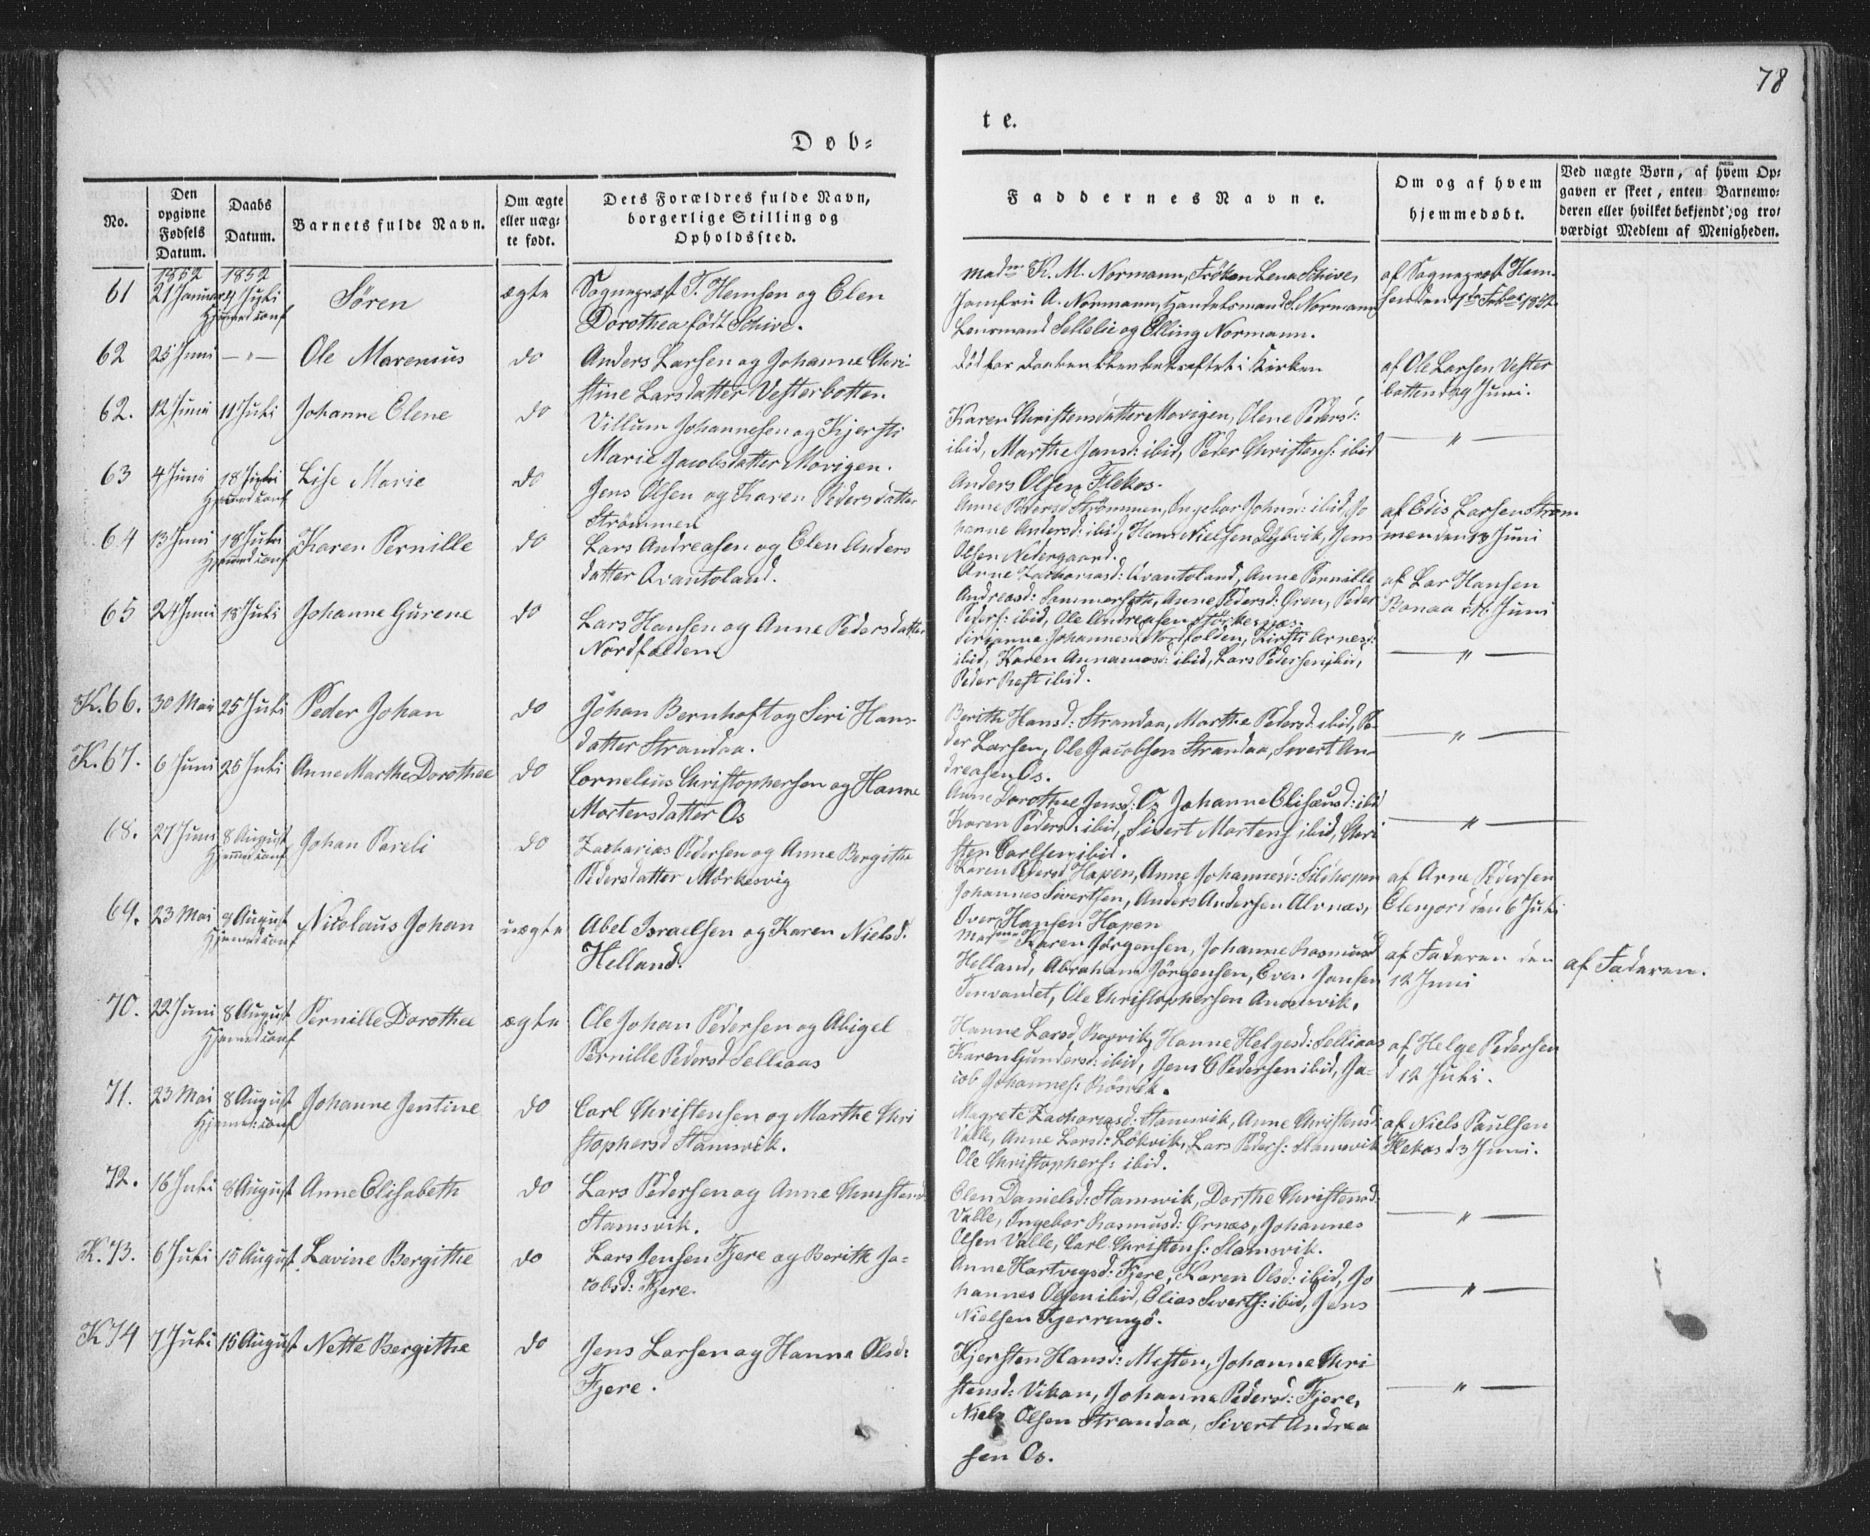 78
Døb-
te.
No.
Den opgivne Fødsels Datum.
Daabs Datum.
Barnets fulde Navn.
Om ægte eller uægte født.
Dets Forældres fulde Navn, borgerlige Stilling og Opholdssted.
Faddernes Navne.
Om og af hvem hjemmedøbt.
Ved uægte Børn, af hvem Opgaven er skeet, enten Barnemoderen eller hvilket bekjendt, og troværdigt Medlem af Menigheden.
1852 1852
61 21 Januar 4 Juli Søren ægte Sognepræst T. Hemsen og Elen
Hjemmed: conf
Dorothea født Schive.
Madm K. M. Normann, Frøken Lena Schive,
Jomfru A. Normann, Handelsmand S. Normann
Lensmand Sellelie og Elling Normann.
af Sognepræst Hem-
sen den 1ste Febr 1852
62 25 Juni —"— Ole Marenius do Anders Larsen og Johanne Chri-
stine Larsdatter Vesterbotten
død før Daaben blev bekræftet i Kirken
af Ole Larsen Vester
botten d 29 Juni.
62. 12 Juni 11 Juli Johanne Elene do Villum Johannesen og Kjersti
Marie Jacobsdatter Movigen.
Karen Christensdatter Movigen, Olene Pedersd:
ibid, Marthe Jansd: ibid, Peder Christens: ibid
Anders Olsen Flekos.
— " —
63 4 Juni 18 Juli Lise Marie do Jens Olsen og Karen Pedersdatter
Hjemmed: conf
Strømmen
Anne Pedersd Strømmen, Ingebor Johnsd: ibid, Jo
hanne Andersd: ibid, Hans Nielsen Dybvik, Jens
Olsen Nedergaard.
af Edis Larsen Strøm-
men den 13 Juni
64 13 Juni 18 Juli Karen Pernille do Lars Andreasen og Elen Anders
Hjemmed: conf
datter Qvantoland.
Anne Zachariasd: Qvantoland, Anne Pernille
Andreasd: Sommerseth, Anne Pedersd: Øren, Peder
Peders: ibid, Ole Andreasen Størkesnæs.
af Lar Hansen
Bonaa d 16 Juni
65 24 Juni 18 Juli Johanne Gurene do Lars Hansen og Anne Pedersdatter
Nordfolden
Johannesd Nordfolden, Kirsti Arnesd:
ibid, Karen Annanasd: ibid, Lars Pedersen ibid,
Peder Rest ibid.
— " —
K. 66. 30 Mai 25 Juli Peder Johan do Johan Bernhoft og Siri Hans-
datter Strandaa.
Berith Hansd: Strandaa, Marthe Pedersd ibid, Pe-
der Larsen, Ole Jacobsen Strandaa, Sivert An-
dreasen Os.
— " —
K. 67. 6 Juni 25 Juli Anne Marthe Dorothee do Cornelius Christophersen og Hanne
Mortensdatter Os
Anne Dorothee Jensd: Os Johanne Elisæusd: ibid
Karen Pedersd: ibid, Sivert Mortens ibid, Chri
sten Carlsen ibid.
— " —
68. 27 Juni 8 August Johan Pareli do Zacharias Pedersen og Anne Bergithe
Hjemmed: conf
Pedersdatter Mørkesvig
Karen Pedersd Hopen, Anne Johannesd: Sildhopen
Johannes Sivertsen, Anders Andersen Alvnæs,
Over Hansen Hopen
af Arne Pedersen
Elenjord den 6 Juli
69. 23 Mai 8 August Nicolaus Johan uægte Abel Israelsen og Karen Nielsd.
Hjemmed: conf
Helland.
Karen Jørgensen, Johanne Rasmusd
Helland, Abraham Jørgensen, Even Jansen
Tenvandet, Ole Christophersen Andersvik.
af Faderen den
12 Juni
af Faderen.
70. 22 Juni 8 August Pernille Dorothee ægte Ole Johan Pedersen og Abigel
Hjemmed: conf
Pernille Pedersd Selliaas
Hanne Larsd Røsvik, Hanne Helgesd: Selliaas
Karen Gundersd: ibid, Jens C Pedersen ibid, Ja-
cob Johannes: Røsvik.
af Helge Pedersen
d 12 Juli.
71. 23 Mai 8 August Johanne Jentine do Carl Christensen og Marthe Chri
Hjemmed: conf
stophersd Stamsvik.
Magrete Zachariasd: Stamsvik, Anne Christensd:
Valle, Anne Larsd: Løkvik, Lars Peders: Stamsvik
Ole Christophers: ibid.
af Niels Paulsen
Flekos d 3 Juni.
72. 16 Juli 8 August Anne Elisabeth do Lars Pedersen og Anne Christensd
Stamsvik.
Elen Danielsd: Stamsvik, Dorthe Christensd:
Valle, Ingebor Rasmusd: Ørnæs, Johannes
Olsen Valle, Carl Christens: Stamsvik.
— " —
K. 73. 6 Juli 15 August Lavine Bergithe do Lars Jensen Fjere og Berith Ja-
cobsd: Fjere.
Anne Hartvigsd: Fjere, Karen Olsd: ibid, Jo
hannes Olsen ibid, Elias Siverts: ibid, Jens
Nielsen Kjerringø.
— " —
K 74 7 Juli 15 August Nette Bergithe do Jens Larsen og Hanna Olsd:
Fjere.
Kjersten Hansd: Misten, Johanne Chri
stensd: Vikan, Johanna Pedersd: Fjere,
Niels Olsen Strandaa, Sivert Andrea
sen Os.
— " —